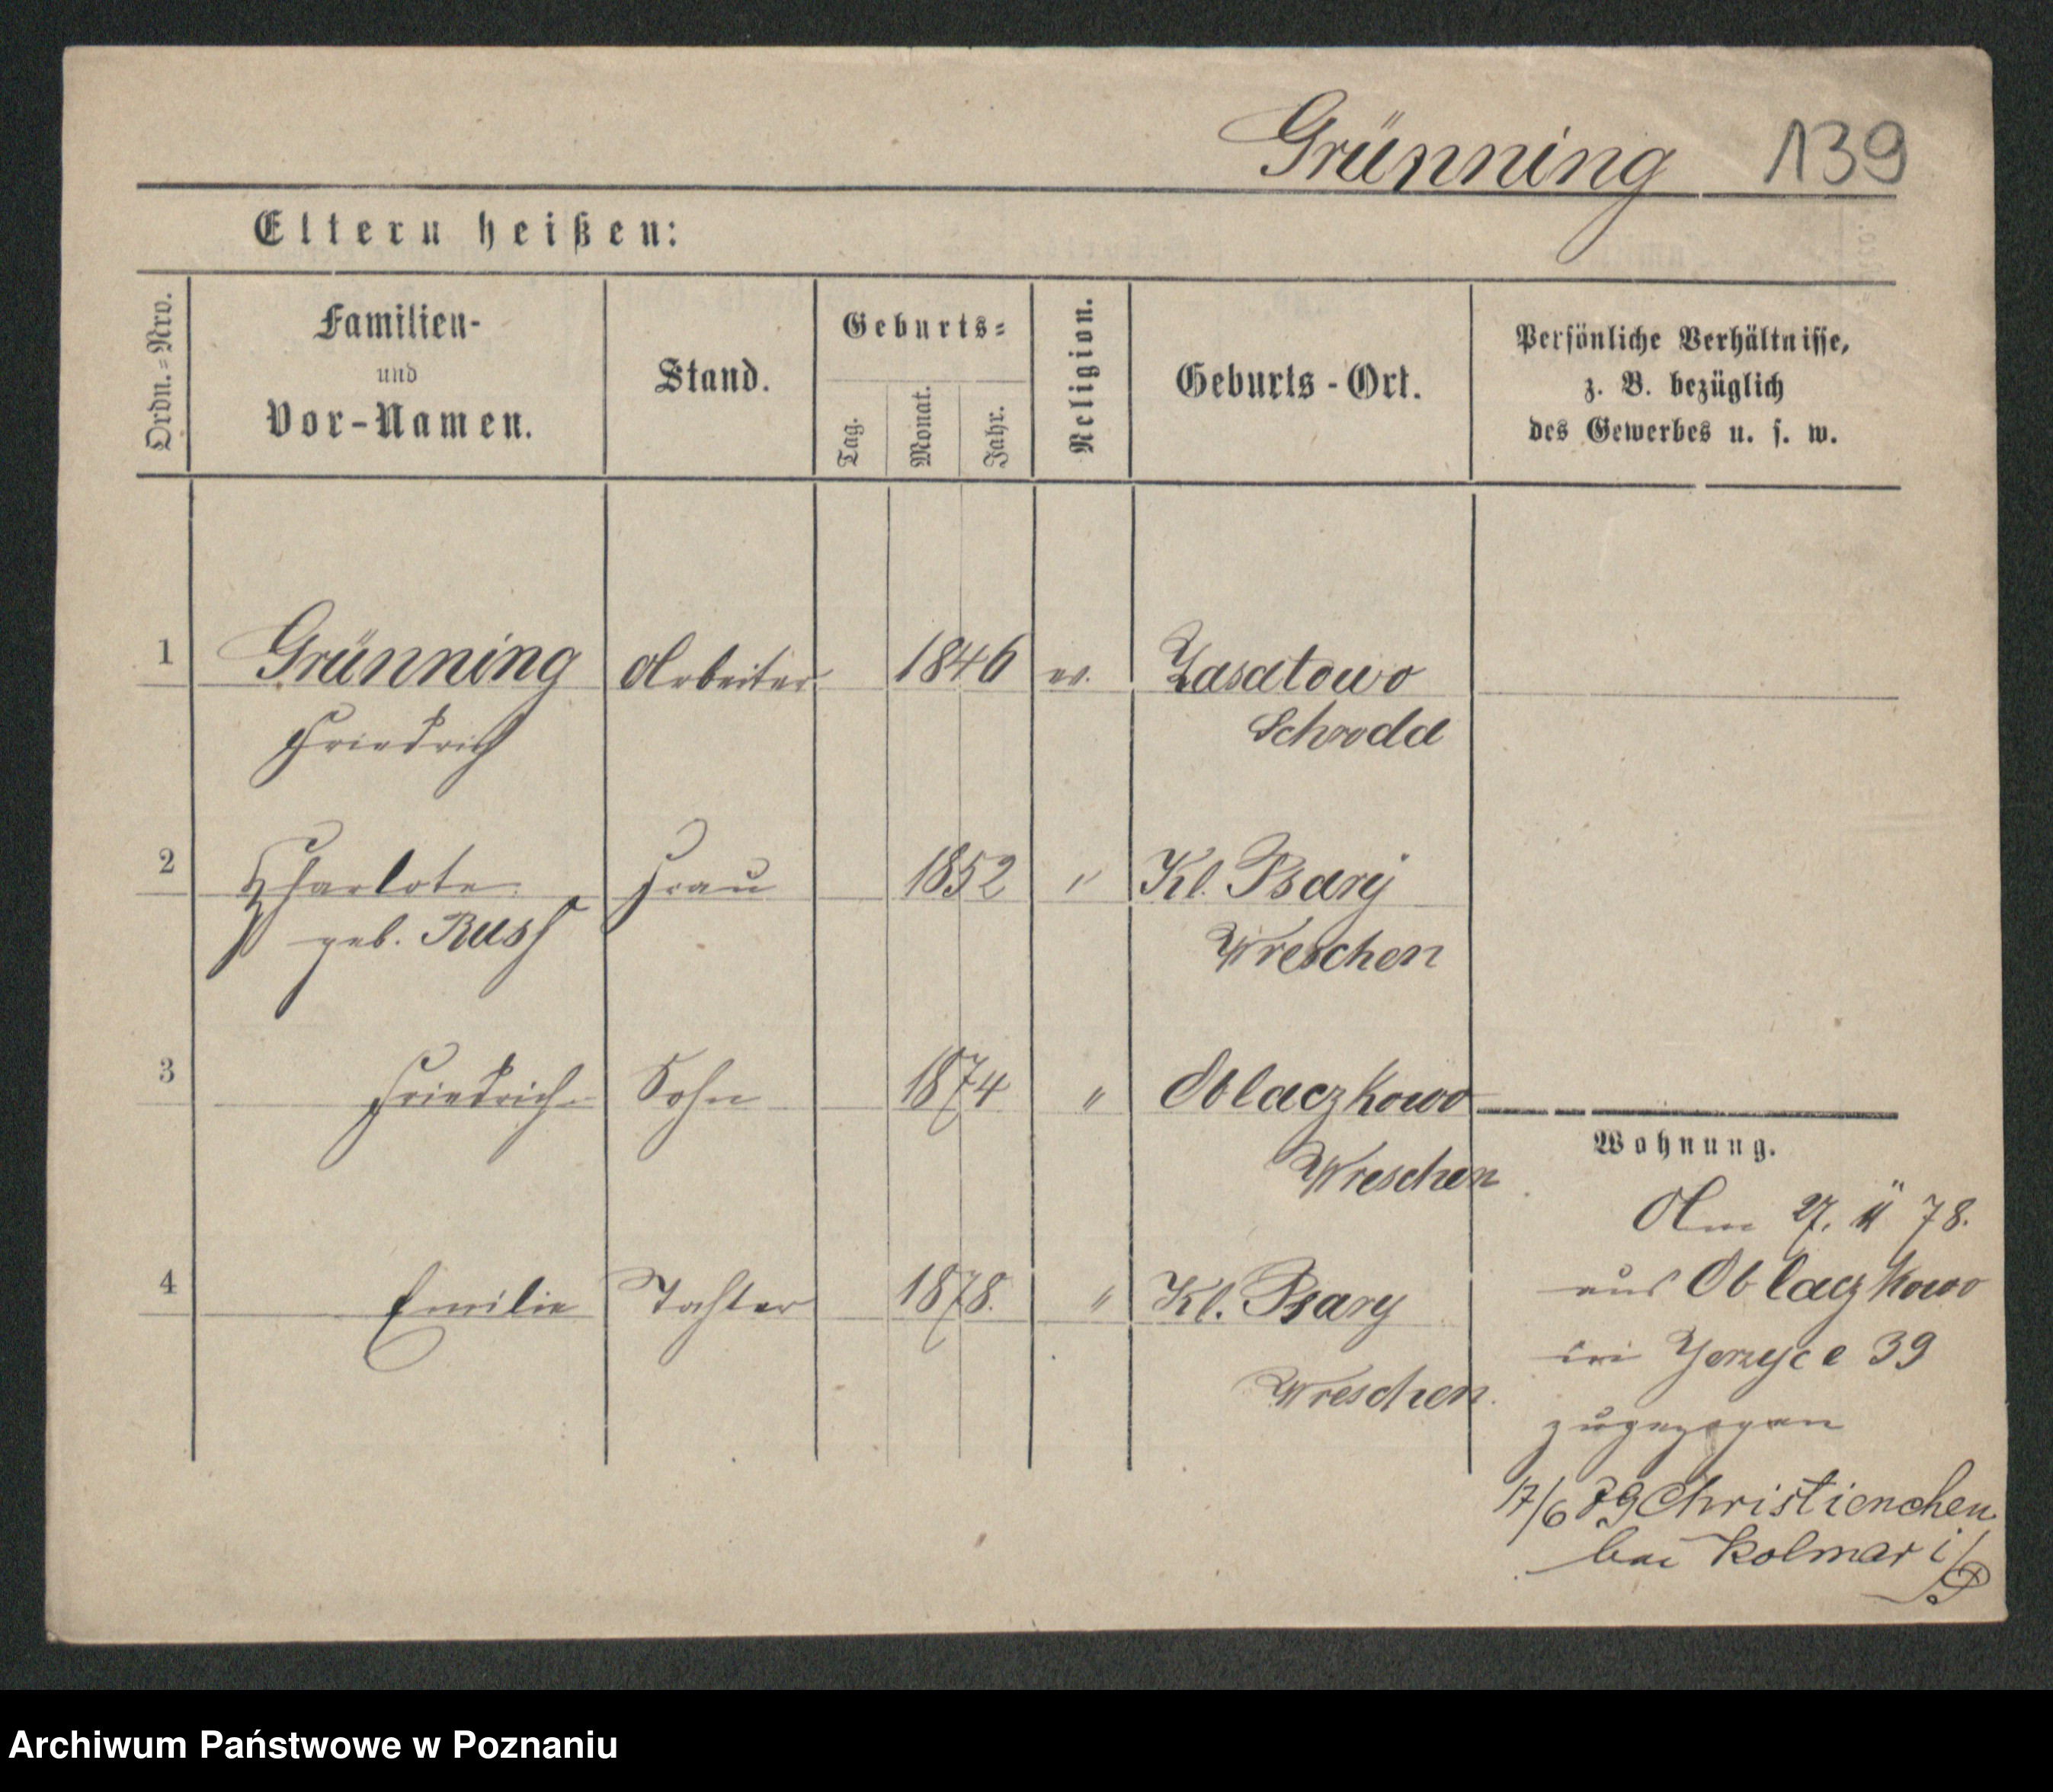 Grünning 139
Eltern heißen:
Ordn.=Nro.
Familien-
und
Vor-Namen.
Stand.
Geburts=
Tag.
Monat.
Jahr.
Religion.
Geburts-Ort.
Persönliche Verhältnisse,
z. B. bezüglich
des Gewerbes u. s. w.
1 Grünning Arbeiter 1846 ev. Zasatowo
Friedrich Schroda
2 Charlote Frau 1852 " Kl. Psary
geb. Russ Wreschen
3 Friedrich Sohn 1874 " Oblaczkowo
Wreschen
4 Emilie Tochter 1878. " Kl. Psary
Wreschen.
Wohnung.
Am 27. 11 78.
aus Oblaczkowo
in Jerzyce 39
zugezogen
17/6 79 Christienchen
bei Kolmar i/P
Archiwum Państwowe w Poznaniu